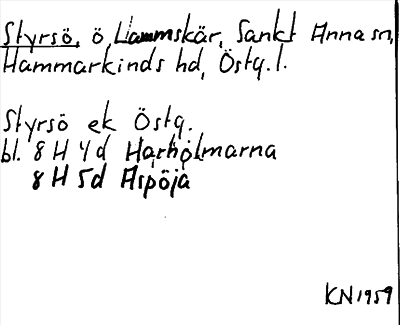 Styrsö, ö, Lammskär, Sankt Anna sn,
Hammarkinds hd, Östg. l.
Styrsö ek Östg.
bl. 8 H 4 d Harholmarna
8 H 5d Aspöja
KN 1959